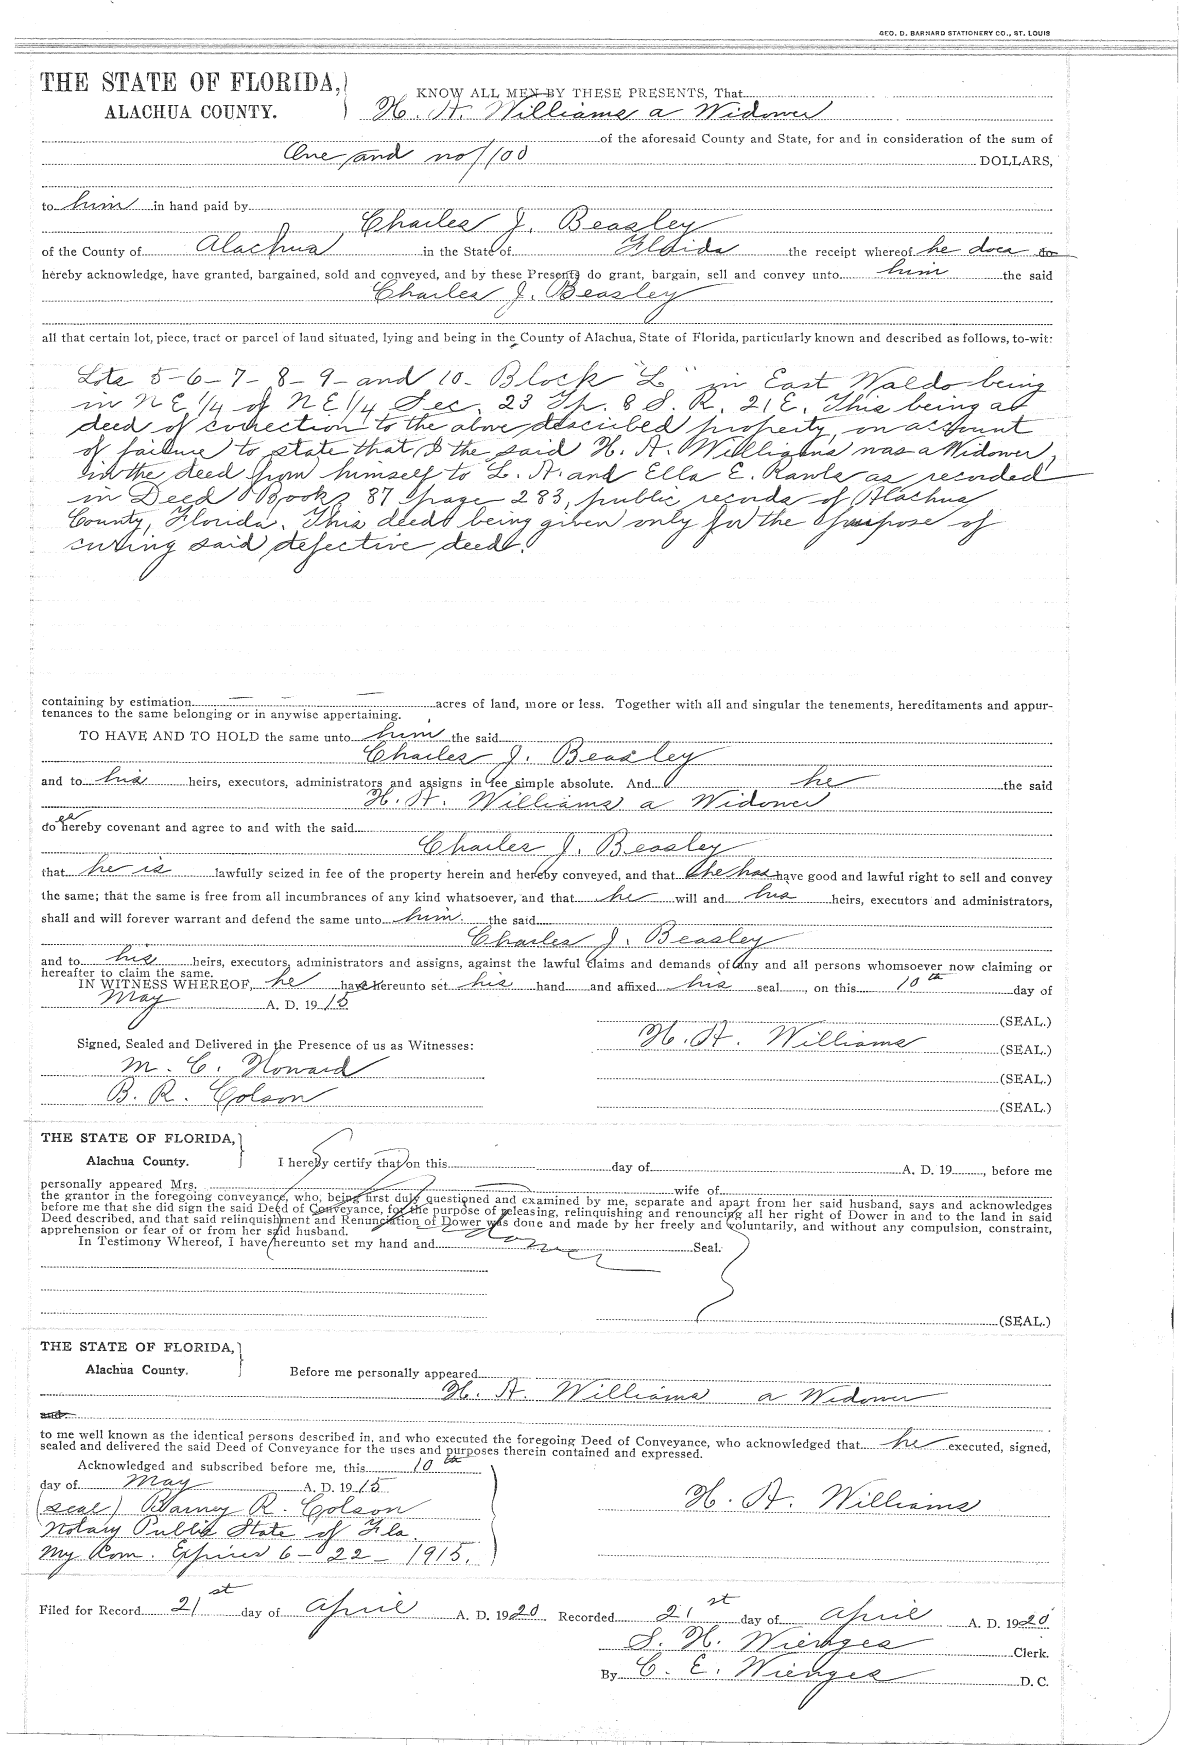 GEO. D. BARNARD STATIONERY CO., ST. LOUIS
THE STATE OF FLORIDA,
ALACHUA COUNTY.
KNOW ALL MEN BY THESE PRESENTS, That
H. A. Williams a Widower
of the aforesaid County and State, for and in consideration of the sum of
One and no/100 DOLLARS,
to him in hand paid by
Charles J. Beasley
of the County of Alachua in the State of Floida the receipt whereof he does do
hereby acknowledge, have granted, bargained, sold and conveyed, and by these Presents do grant, bargain, sell and convey unto him the said
Charles J. Beasley
all that certain lot, piece, tract or parcel of land situated, lying and being in the County of Alachua, State of Florida, particularly known and described as follows, to-wit:
Lots 5-6-7-8-9- and 10- Block "L" in East Waldo being
in NE 1/4 of NE 1/4 Sec. 23 Tp. 8 S. R. 21 E. This being a
deed of correction to the above described property, on account
of failure to state that I the said H. A. Williams was a Widower,
in the deed from himself to L. A. and Ella E. Rawls as recorded
in Deed Book 87 page 283, public records of Alachua
County, Florida. This deed being given only for the purpose of
curing said defective deed.
containing by estimation — — — acres of land, more or less. Together with all and singular the tenements, hereditaments and appur-
tenances to the same belonging or in anywise appertaining.
TO HAVE AND TO HOLD the same unto him the said
Charles J. Beasley
and to his heirs, executors, administrators and assigns in fee simple absolute. And he the said
H. A. Williams a Widower
do es hereby covenant and agree to and with the said
Charles J. Beasley
that he is lawfully seized in fee of the property herein and hereby conveyed, and that he has have good and lawful right to sell and convey
the same; that the same is free from all incumbrances of any kind whatsoever, and that he will and his heirs, executors and administrators,
shall and will forever warrant and defend the same unto him the said
Charles J. Beasley
and to his heirs, executors, administrators and assigns, against the lawful claims and demands of any and all persons whomsoever now claiming or
hereafter to claim the same.
IN WITNESS WHEREOF, he has hereunto set his hand and affixed his seal, on this 10th day of
May A. D. 1915
(SEAL.)
H. A. Williams (SEAL.)
Signed, Sealed and Delivered in the Presence of us as Witnesses:
M. C. Howard (SEAL.)
B. R. Colson (SEAL.)
THE STATE OF FLORIDA,
Alachua County.
I hereby certify that on this day of A. D. 19, before me
personally appeared Mrs. wife of
the grantor in the foregoing conveyance, who, being first duly questioned and examined by me, separate and apart from her said husband, says and acknowledges
before me that she did sign the said Deed of Conveyance, for the purpose of releasing, relinquishing and renouncing all her right of Dower in and to the land in said
Deed described, and that said relinquishment and Renunciation of Dower was done and made by her freely and voluntarily, and without any compulsion, constraint,
apprehension or fear of or from her said husband.
In Testimony Whereof, I have hereunto set my hand and Seal.
(SEAL.)
THE STATE OF FLORIDA,
Alachua County.
Before me personally appeared
H. A. Williams a Widower
and
to me well known as the identical persons described in, and who executed the foregoing Deed of Conveyance, who acknowledged that he executed, signed,
sealed and delivered the said Deed of Conveyance for the uses and purposes therein contained and expressed.
Acknowledged and subscribed before me, this 10th
day of May A. D. 1915
H. A. Williams
(seal) Barney R. Colson
Notary Public State of Fla.
My Com. Expires 6-22-1915.
Filed for Record 21st day of April A. D. 1920 Recorded 21st day of April A. D. 1920
S. H. Wienges Clerk.
By C. E. Wienges D. C.